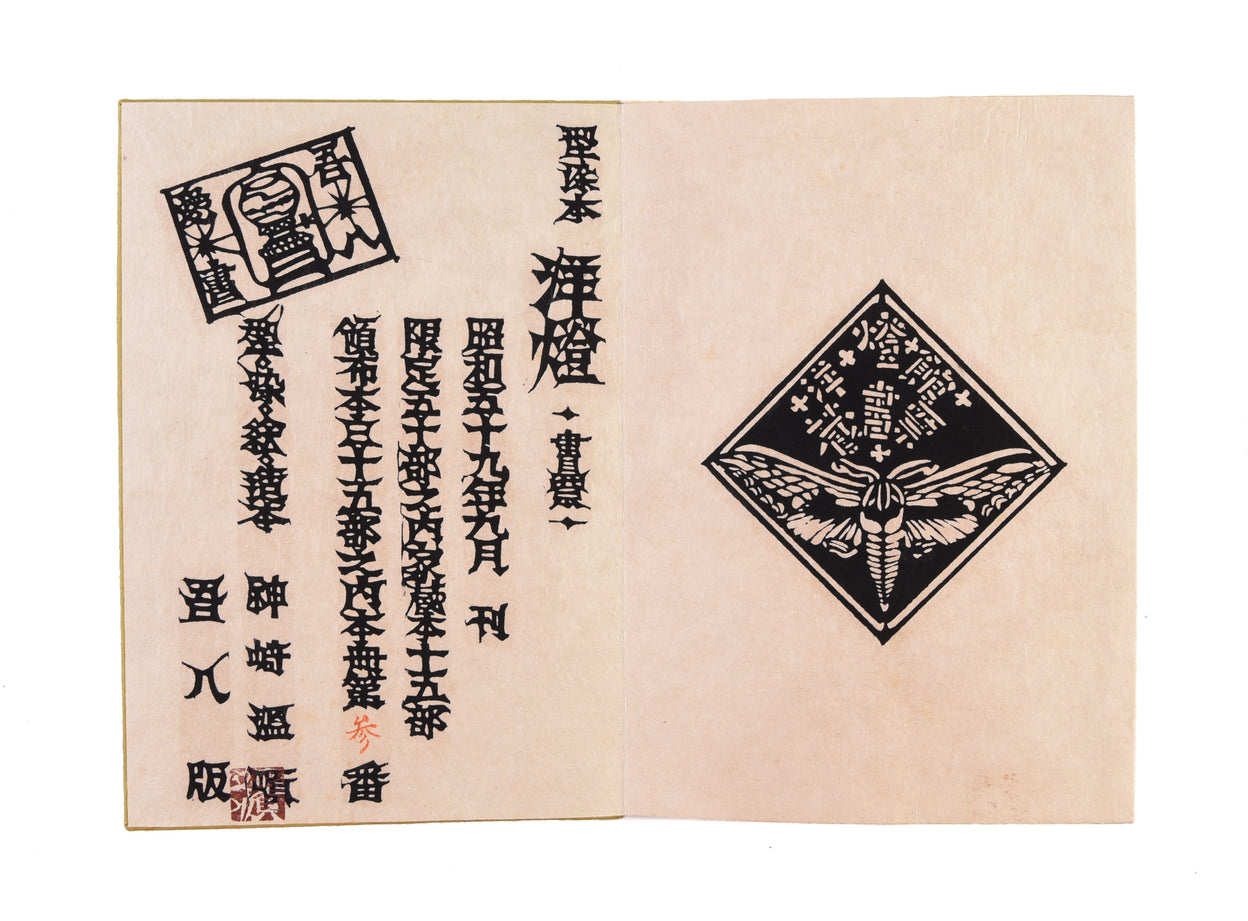 型染本 洋燈 書票
昭和五十九年九月 刊
限定五十部之内家蔵本十五部
頒布本三十五部之内本冊第参番
型染絵造本 神崎温順
吾八版
吾八
愛書